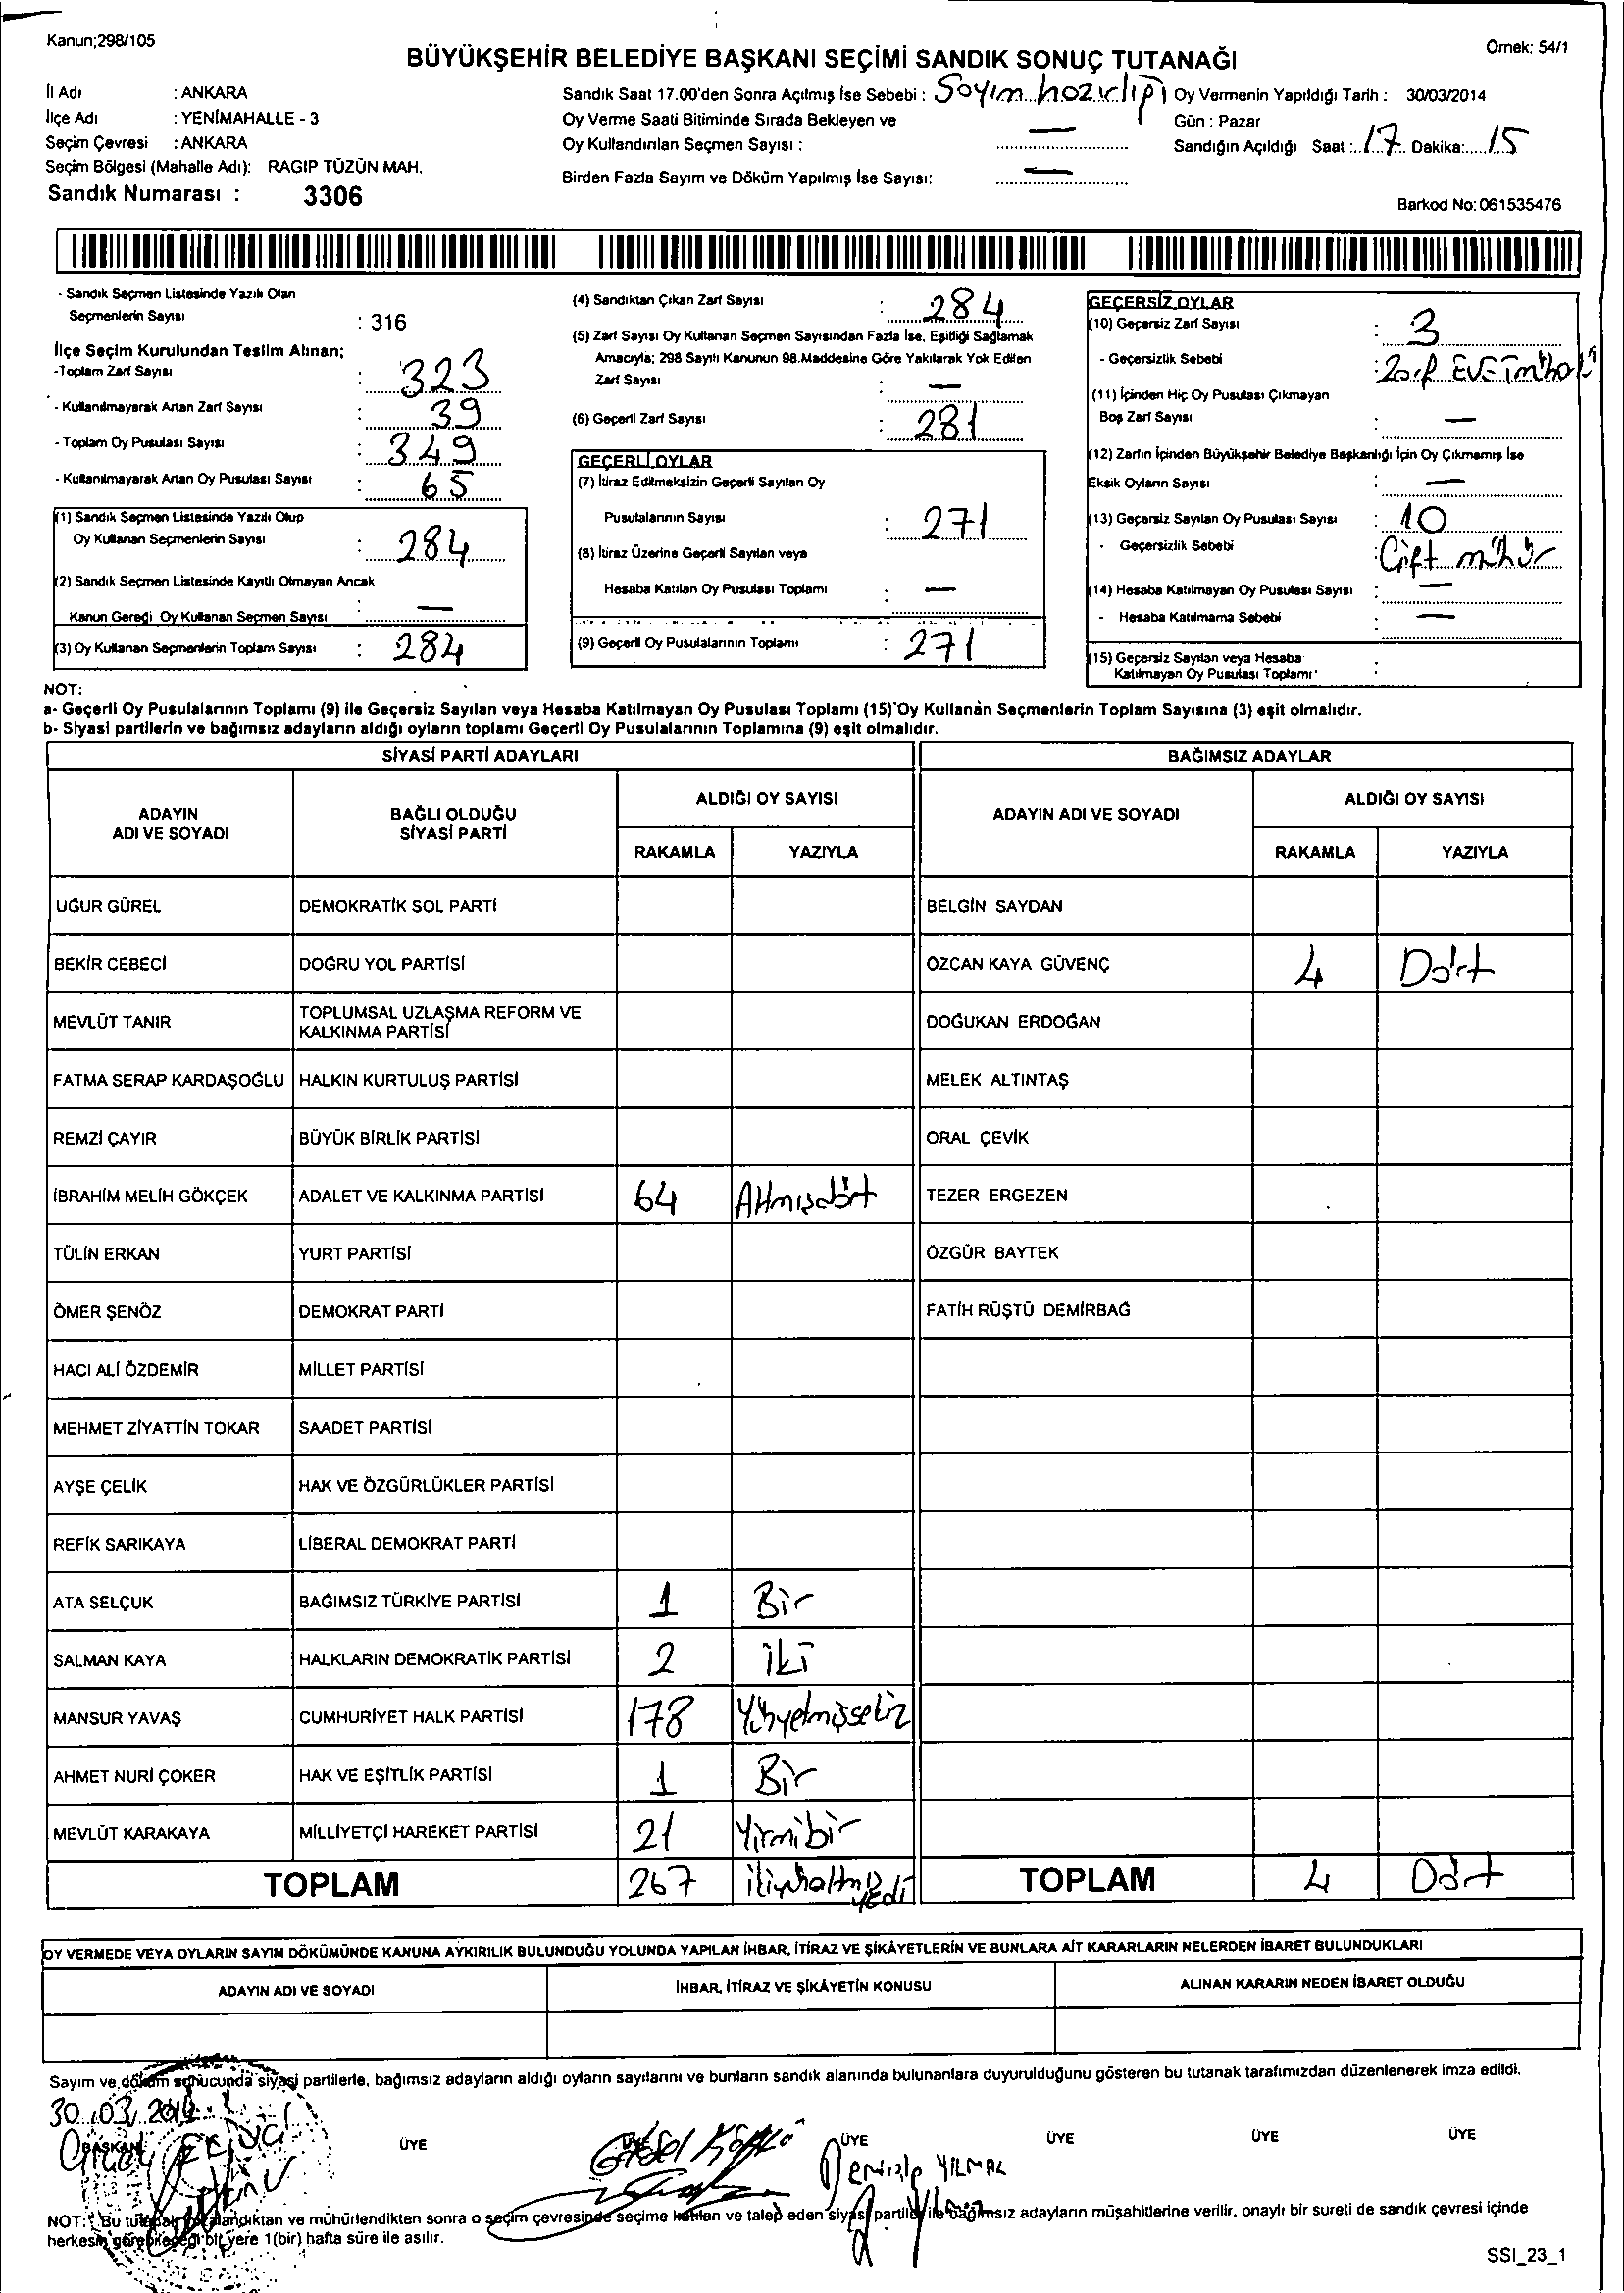 Kanun;298/105
Örnek: 54/1
BÜYÜKŞEHİR BELEDİYE BAŞKANI SEÇİMİ SANDIK SONUÇ TUTANAĞI
İl Adı : ANKARA
İlçe Adı : YENİMAHALLE - 3
Seçim Çevresi : ANKARA
Seçim Bölgesi (Mahalle Adı): RAGIP TÜZÜN MAH.
Sandık Numarası : 3306
Sandık Saat 17.00'den Sonra Açılmış İse Sebebi : Sayım hazırlığı
Oy Verme Saati Bitiminde Sırada Bekleyen ve
Oy Kullandırılan Seçmen Sayısı : —
Birden Fazla Sayım ve Döküm Yapılmış İse Sayısı: —
Oy Vermenin Yapıldığı Tarih : 30/03/2014
Gün : Pazar
Sandığın Açıldığı Saat : 17 Dakika: 15
Barkod No: 061535476
- Sandık Seçmen Listesinde Yazılı Olan
Seçmenlerin Sayısı : 316
İlçe Seçim Kurulundan Teslim Alınan;
-Toplam Zarf Sayısı : 323
- Kullanılmayarak Artan Zarf Sayısı : 39
- Toplam Oy Pusulası Sayısı : 349
- Kullanılmayarak Artan Oy Pusulası Sayısı : 65
(1) Sandık Seçmen Listesinde Yazılı Olup
Oy Kullanan Seçmenlerin Sayısı : 284
(2) Sandık Seçmen Listesinde Kayıtlı Olmayan Ancak
Kanun Gereği Oy Kullanan Seçmen Sayısı : —
(3) Oy Kullanan Seçmenlerin Toplam Sayısı : 284
(4) Sandıktan Çıkan Zarf Sayısı : 284
(5) Zarf Sayısı Oy Kullanan Seçmen Sayısından Fazla İse, Eşitliği Sağlamak
Amacıyla; 298 Sayılı Kanunun 98.Maddesine Göre Yakılarak Yok Edilen
Zarf Sayısı : —
(6) Geçerli Zarf Sayısı : 281
GEÇERLİ OYLAR
(7) İtiraz Edilmeksizin Geçerli Sayılan Oy
Pusulalarının Sayısı : 271
(8) İtiraz Üzerine Geçerli Sayılan veya
Hesaba Katılan Oy Pusulası Toplamı : —
(9) Geçerli Oy Pusulalarının Toplamı : 271
GEÇERSİZ OYLAR
(10) Geçersiz Zarf Sayısı : 3
- Geçersizlik Sebebi : Zarf EVET mühürlü
(11) İçinden Hiç Oy Pusulası Çıkmayan
Boş Zarf Sayısı : —
(12) Zarfın İçinden Büyükşehir Belediye Başkanlığı İçin Oy Çıkmamış İse
Eksik Oyların Sayısı : —
(13) Geçersiz Sayılan Oy Pusulası Sayısı : 10
- Geçersizlik Sebebi : Çift mühür
(14) Hesaba Katılmayan Oy Pusulası Sayısı : —
- Hesaba Katılmama Sebebi : —
(15) Geçersiz Sayılan veya Hesaba
Katılmayan Oy Pusulası Toplamı :
NOT:
a- Geçerli Oy Pusulalarının Toplamı (9) ile Geçersiz Sayılan veya Hesaba Katılmayan Oy Pusulası Toplamı (15) Oy Kullanan Seçmenlerin Toplam Sayısına (3) eşit olmalıdır.
b- Siyasi partilerin ve bağımsız adayların aldığı oyların toplamı Geçerli Oy Pusulalarının Toplamına (9) eşit olmalıdır.
SİYASİ PARTİ ADAYLARI
BAĞIMSIZ ADAYLAR
ADAYIN ADI VE SOYADI
BAĞLI OLDUĞU SİYASİ PARTİ
ALDIĞI OY SAYISI
RAKAMLA YAZIYLA
ADAYIN ADI VE SOYADI
ALDIĞI OY SAYISI
RAKAMLA YAZIYLA
UĞUR GÜREL DEMOKRATİK SOL PARTİ BELGİN SAYDAN
BEKİR CEBECİ DOĞRU YOL PARTİSİ ÖZCAN KAYA GÜVENÇ 4 Dört
MEVLÜT TANIR TOPLUMSAL UZLAŞMA REFORM VE KALKINMA PARTİSİ DOĞUKAN ERDOĞAN
FATMA SERAP KARDAŞOĞLU HALKIN KURTULUŞ PARTİSİ MELEK ALTINTAŞ
REMZİ ÇAYIR BÜYÜK BİRLİK PARTİSİ ORAL ÇEVİK
İBRAHİM MELİH GÖKÇEK ADALET VE KALKINMA PARTİSİ 64 Altmışdört TEZER ERGEZEN
TÜLİN ERKAN YURT PARTİSİ ÖZGÜR BAYTEK
ÖMER ŞENÖZ DEMOKRAT PARTİ FATİH RÜŞTÜ DEMİRBAĞ
HACI ALİ ÖZDEMİR MİLLET PARTİSİ
MEHMET ZİYATTİN TOKAR SAADET PARTİSİ
AYŞE ÇELİK HAK VE ÖZGÜRLÜKLER PARTİSİ
REFİK SARIKAYA LİBERAL DEMOKRAT PARTİ
ATA SELÇUK BAĞIMSIZ TÜRKİYE PARTİSİ 1 Bir
SALMAN KAYA HALKLARIN DEMOKRATİK PARTİSİ 2 iki
MANSUR YAVAŞ CUMHURİYET HALK PARTİSİ 178 Yüzyetmişsekiz
AHMET NURİ ÇOKER HAK VE EŞİTLİK PARTİSİ 1 Bir
MEVLÜT KARAKAYA MİLLİYETÇİ HAREKET PARTİSİ 21 Yirmibir
TOPLAM 267 ikiyüzaltmışyedi TOPLAM 4 Dört
OY VERMEDE VEYA OYLARIN SAYIM DÖKÜMÜNDE KANUNA AYKIRILIK BULUNDUĞU YOLUNDA YAPILAN İHBAR, İTİRAZ VE ŞİKÂYETLERİN VE BUNLARA AİT KARARLARIN NELERDEN İBARET BULUNDUKLARI
ADAYIN ADI VE SOYADI İHBAR, İTİRAZ VE ŞİKÂYETİN KONUSU ALINAN KARARIN NEDEN İBARET OLDUĞU
Sayım ve döküm sonucunda siyasi partilerle, bağımsız adayların aldığı oyların sayılarını ve bunların sandık alanında bulunanlara duyurulduğunu gösteren bu tutanak tarafımızdan düzenlenerek imza edildi.
30.03.2014
BAŞKAN ÜYE ÜYE ÜYE ÜYE ÜYE
YILMAZ
NOT: Bu tutanak imzalandıktan ve mühürlendikten sonra o seçim çevresinde seçime katılan ve talep eden siyasi partiler ile bağımsız adayların müşahitlerine verilir, onaylı bir sureti de sandık çevresi içinde
herkesin görebileceği bir yere 1(bir) hafta süre ile asılır.
SSI_23_1